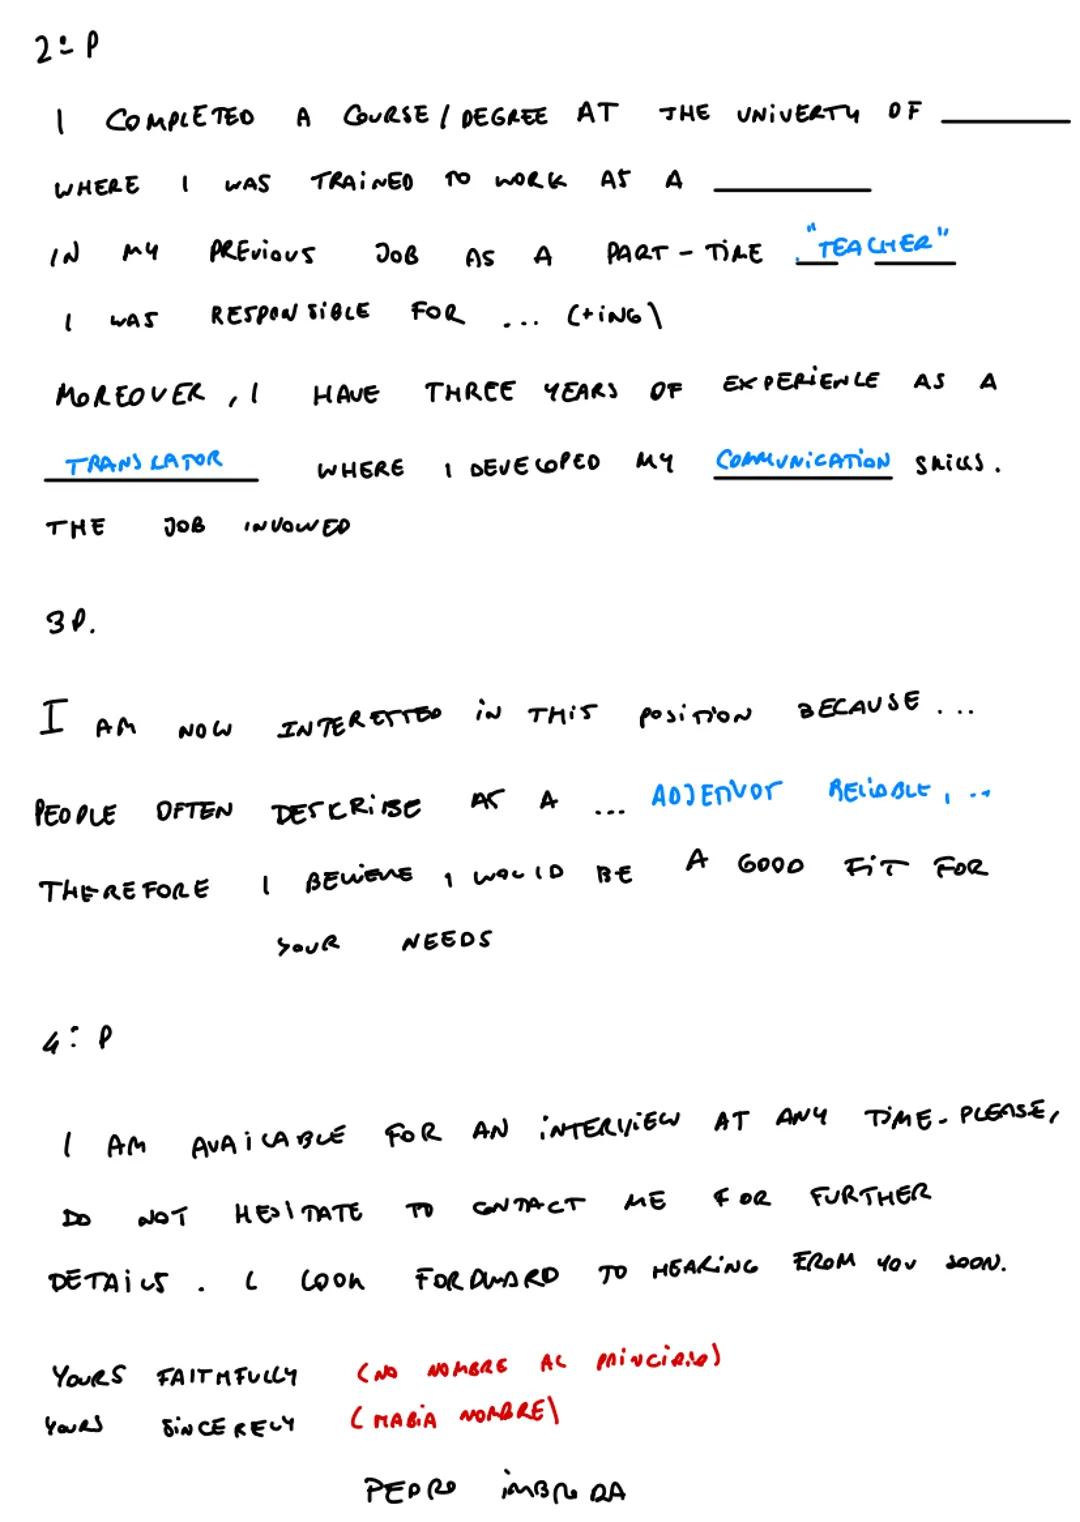 2º P
I COMPLETED A COURSE / DEGREE AT THE UNIVERTY OF ________
WHERE I WAS TRAINED TO WORK AS A ________
IN MY PREVIOUS JOB AS A PART-TIME "TEACHER"
I WAS RESPONSIBLE FOR ... (+ING)
MOREOVER, I HAVE THREE YEARS OF EXPERIENCE AS A
TRANSLATOR WHERE I DEVELOPED MY COMMUNICATION SKILLS.
THE JOB INVOLVED
3P.
I AM NOW INTERESTED IN THIS POSITION BECAUSE ...
PEOPLE OFTEN DESCRIBE AS A ... ADJETIVOS RELIABLE, ..
THEREFORE I BELIEVE I WOULD BE A GOOD FIT FOR
YOUR NEEDS
4º P
I AM AVAILABLE FOR AN INTERVIEW AT ANY TIME. PLEASE,
DO NOT HESITATE TO CONTACT ME FOR FURTHER
DETAILS. I LOOK FORWARD TO HEARING FROM YOU SOON.
YOURS FAITHFULLY (NO NOMBRE AL PRINCIPIO)
YOURS SINCERELY (HABIA NOMBRE)
PEDRO IMBRODA